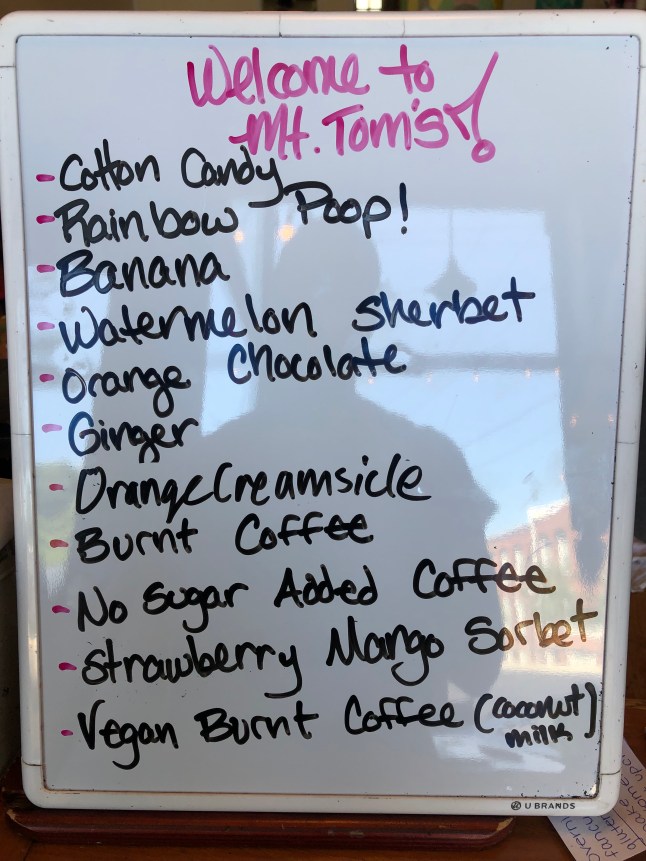 Welcome to
Mt. Tom's!
- Cotton Candy
- Rainbow Poop!
- Banana
- Watermelon Sherbet
- Orange Chocolate
- Ginger
- Orange Creamsicle
- Burnt Coffee
- No Sugar Added Coffee
- Strawberry Mango Sorbet
- Vegan Burnt Coffee (coconut
milk)
U BRANDS